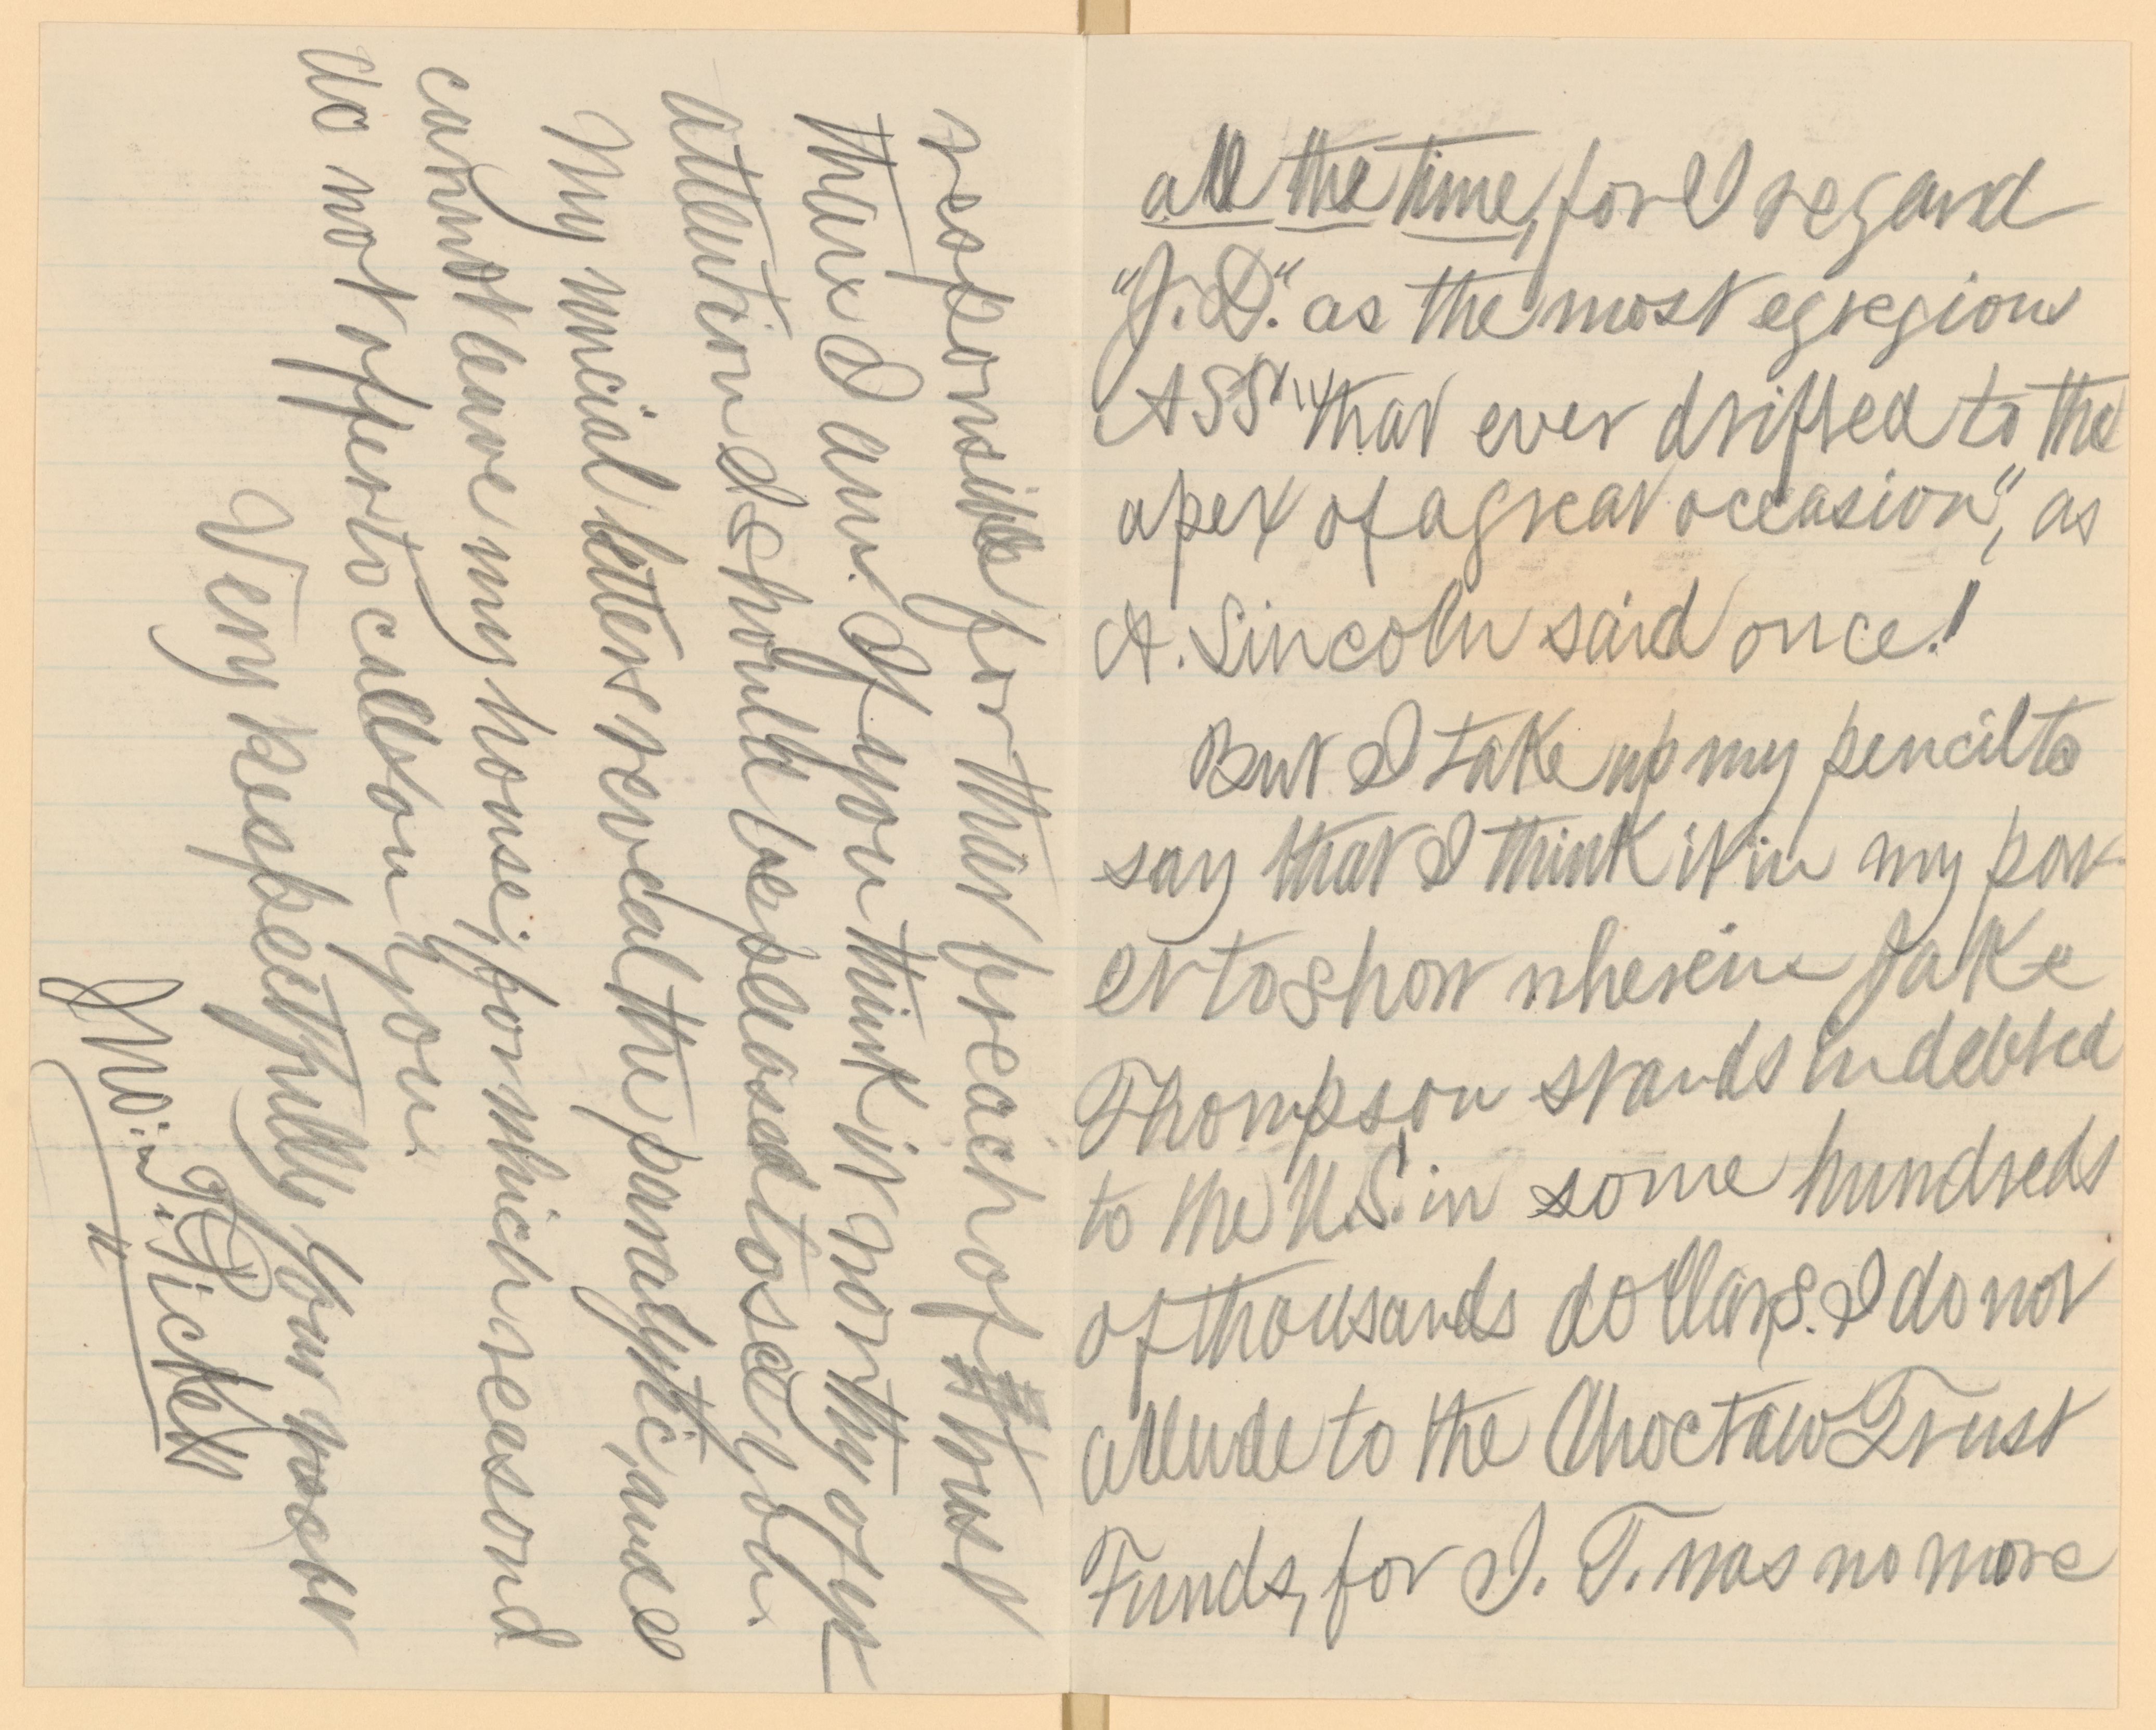 all the time, for I regard
"J. D." as the most egregious
ASS "that ever drifted to the
apex of a great occasion", as
A. Lincoln said once!
But I take up my pencil to
say that I think it in my pow-
er to show wherein Jake
Thompson stands indebted
to the U.S. in some hundreds
of thousands dollars. I do not
allude to the Choctaw Trust
Funds, for J. T. was no more
responsible for that breach of trust
than I am. If you think it worthy of yr
attention I should be pleased to see you.
My uncial letters reveal the paralytic, and I
cannot leave my house; for which reason I
do not offer to call on you.
Very respectfully, Your most obt
Jno: T. Pickett